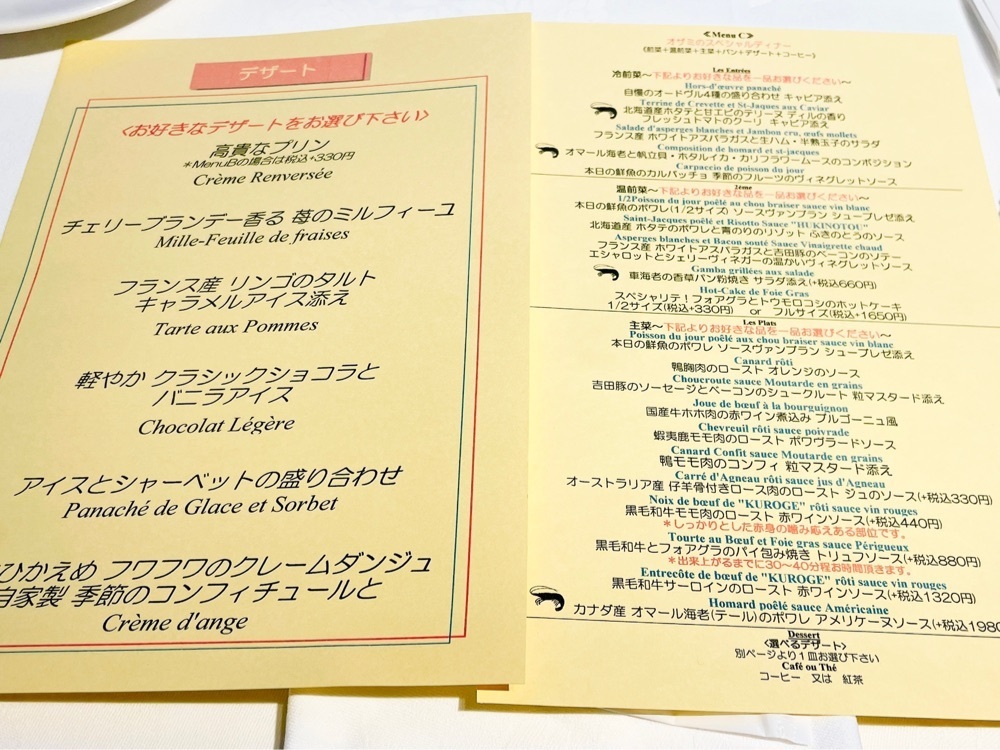 デザート
〈お好きなデザートをお選び下さい〉
高貴なプリン
*MenuBの場合は税込+330円
Crème Renversée
チェリーブランデー香る 苺のミルフィーユ
Mille-Feuille de fraises
フランス産 リンゴのタルト
キャラメルアイス添え
Tarte aux Pommes
軽やか クラシックショコラと
バニラアイス
Chocolat Légère
アイスとシャーベットの盛り合わせ
Panaché de Glace et Sorbet
ひかえめ フワフワのクレームダンジュ
自家製 季節のコンフィチュールと
Crème d'ange
≪Menu C≫
オザミのスペシャルディナー
(前菜+温前菜+主菜+パン+デザート+コーヒー)
Les Entrées
冷前菜~下記よりお好きな品を一品お選びください~
Hors-d'œuvre panaché
自慢のオードヴル4種の盛り合わせ キャビア添え
Terrine de Crevette et St-Jaques aux Caviar
北海道産ホタテと甘エビのテリーヌ ディルの香り
フレッシュトマトのクーリ キャビア添え
Salade d'asperges blanches et Jambon cru, œufs mollets
フランス産 ホワイトアスパラガスと生ハム・半熟玉子のサラダ
Composition de homard et st-jacques
オマール海老と帆立貝・ホタルイカ・カリフラワームースのコンポジション
Carpaccio de poisson du jour
本日の鮮魚のカルパッチョ 季節のフルーツのヴィネグレットソース
2ème
温前菜~下記よりお好きな品を一品お選びください~
1/2Poisson du jour poêlé au chou braiser sauce vin blanc
本日の鮮魚のポワレ(1/2サイズ) ソースヴァンブラン シューブレゼ添え
Saint-Jacques poêlé et Risotto Sauce "HUKINOTOU"
北海道産 ホタテのポワレと青のりのリゾット ふきのとうのソース
Asperges blanches et Bacon souté Sauce Vinaigrette chaud
フランス産 ホワイトアスパラガスと吉田豚のベーコンのソテー
エシャロットとシェリーヴィネガーの温かいヴィネグレットソース
Gamba grillées aux salade
車海老の香草パン粉焼き サラダ添え(+税込660円)
Hot-Cake de Foie Gras
スペシャリテ!フォアグラとトウモロコシのホットケーキ
1/2サイズ(税込+330円) or フルサイズ(税込+1650円)
Les Plats
主菜~下記よりお好きな品を一品お選びください~
Poisson du jour poêlé aux chou braiser sauce vin blanc
本日の鮮魚のポワレ ソースヴァンブラン シューブレゼ添え
Canard rôti
鴨胸肉のロースト オレンジのソース
Choucroute sauce Moutarde en grains
吉田豚のソーセージとベーコンのシュークルート 粒マスタード添え
Joue de bœuf à la bourguignon
国産牛ホホ肉の赤ワイン煮込み ブルゴーニュ風
Chevreuil rôti sauce poivrade
蝦夷鹿モモ肉のロースト ポワヴラードソース
Canard Confit sauce Moutarde en grains
鴨モモ肉のコンフィ 粒マスタード添え
Carré d'Agneau rôti sauce jus d'Agneau
オーストラリア産 仔羊骨付きロース肉のロースト ジュのソース(+税込330円)
Noix de bœuf de "KUROGE" rôti sauce vin rouges
黒毛和牛モモ肉のロースト 赤ワインソース(+税込440円)
*しっかりとした赤身の噛み応えある部位です。
Tourte au Bœuf et Foie gras sauce Périgueux
黒毛和牛とフォアグラのパイ包み焼き トリュフソース(+税込880円)
*出来上がるまでに30~40分程お時間頂きます。
Entrecôte de bœuf de "KUROGE" rôti sauce vin rouges
黒毛和牛サーロインのロースト 赤ワインソース(+税込1320円)
Homard poêlé sauce Américaine
カナダ産 オマール海老(テール)のポワレ アメリケーヌソース(+税込1980
Dessert
〈選べるデザート〉
別ページより1皿お選び下さい
Café ou Thé
コーヒー 又は 紅茶